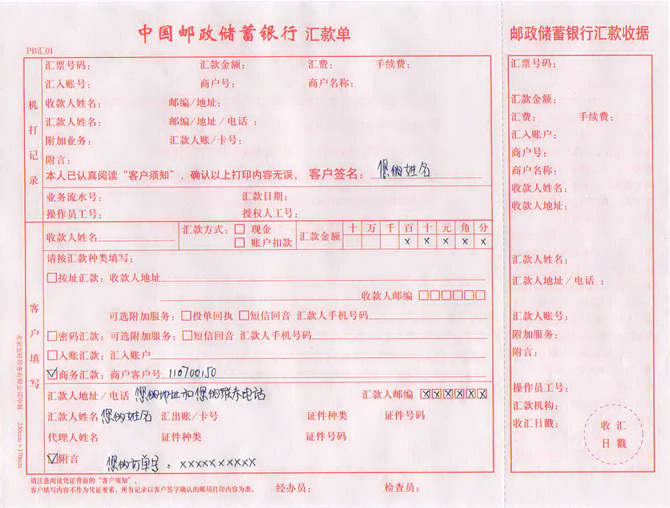 中国邮政储蓄银行 汇款单
邮政储蓄银行汇款收据
PB汇01
机打记录
汇票号码： 汇款金额： 汇费： 手续费：
汇入账号： 商户号： 商户名称：
收款人姓名： 邮编/地址：
汇款人姓名： 邮编/地址/电话：
附加业务： 汇款人账/卡号：
附言：
本人已认真阅读“客户须知”，确认以上打印内容无误， 客户签名： 您的姓名
业务流水号： 汇款日期：
操作员工号： 授权人工号：
客户填写
收款人姓名 汇款方式： □ 现金 □ 账户扣款 汇款金额 十 万 千 百 十 元 角 分
x x x x x
请按汇款种类填写：
□按址汇款：收款人地址
收款人邮编 □□□□□□
可选附加服务：□投单回执 □短信回音 汇款人手机号码
□密码汇款：可选附加服务：□短信回音 汇款人手机号码
□入账汇款：汇入账户
☑商务汇款：商户客户号 110700150
汇款人地址/电话 您的地址和您的联系电话 汇款人邮编 ☒☒☒☒☒☒
汇款人姓名 您的姓名 汇出账/卡号 证件种类 证件号码
代理人姓名 证件种类 证件号码
☑附言 您的订单号：xxxxxxxxxx
请注意阅读凭证背面的“客户须知”。
客户填写内容不作为凭证要素，所有记录以客户签字确认的邮局打印内容为准。 经办员： 检查员：
230mm×170mm
汇票号码：
汇款金额：
汇费： 手续费：
汇入账户：
商户号：
商户名称：
收款人姓名：
收款人地址：
汇款人姓名：
汇款人地址/电话：
汇款人账号：
附加服务：
附言：
操作员工号：
汇款机构：
收汇日期：
收汇
日戳